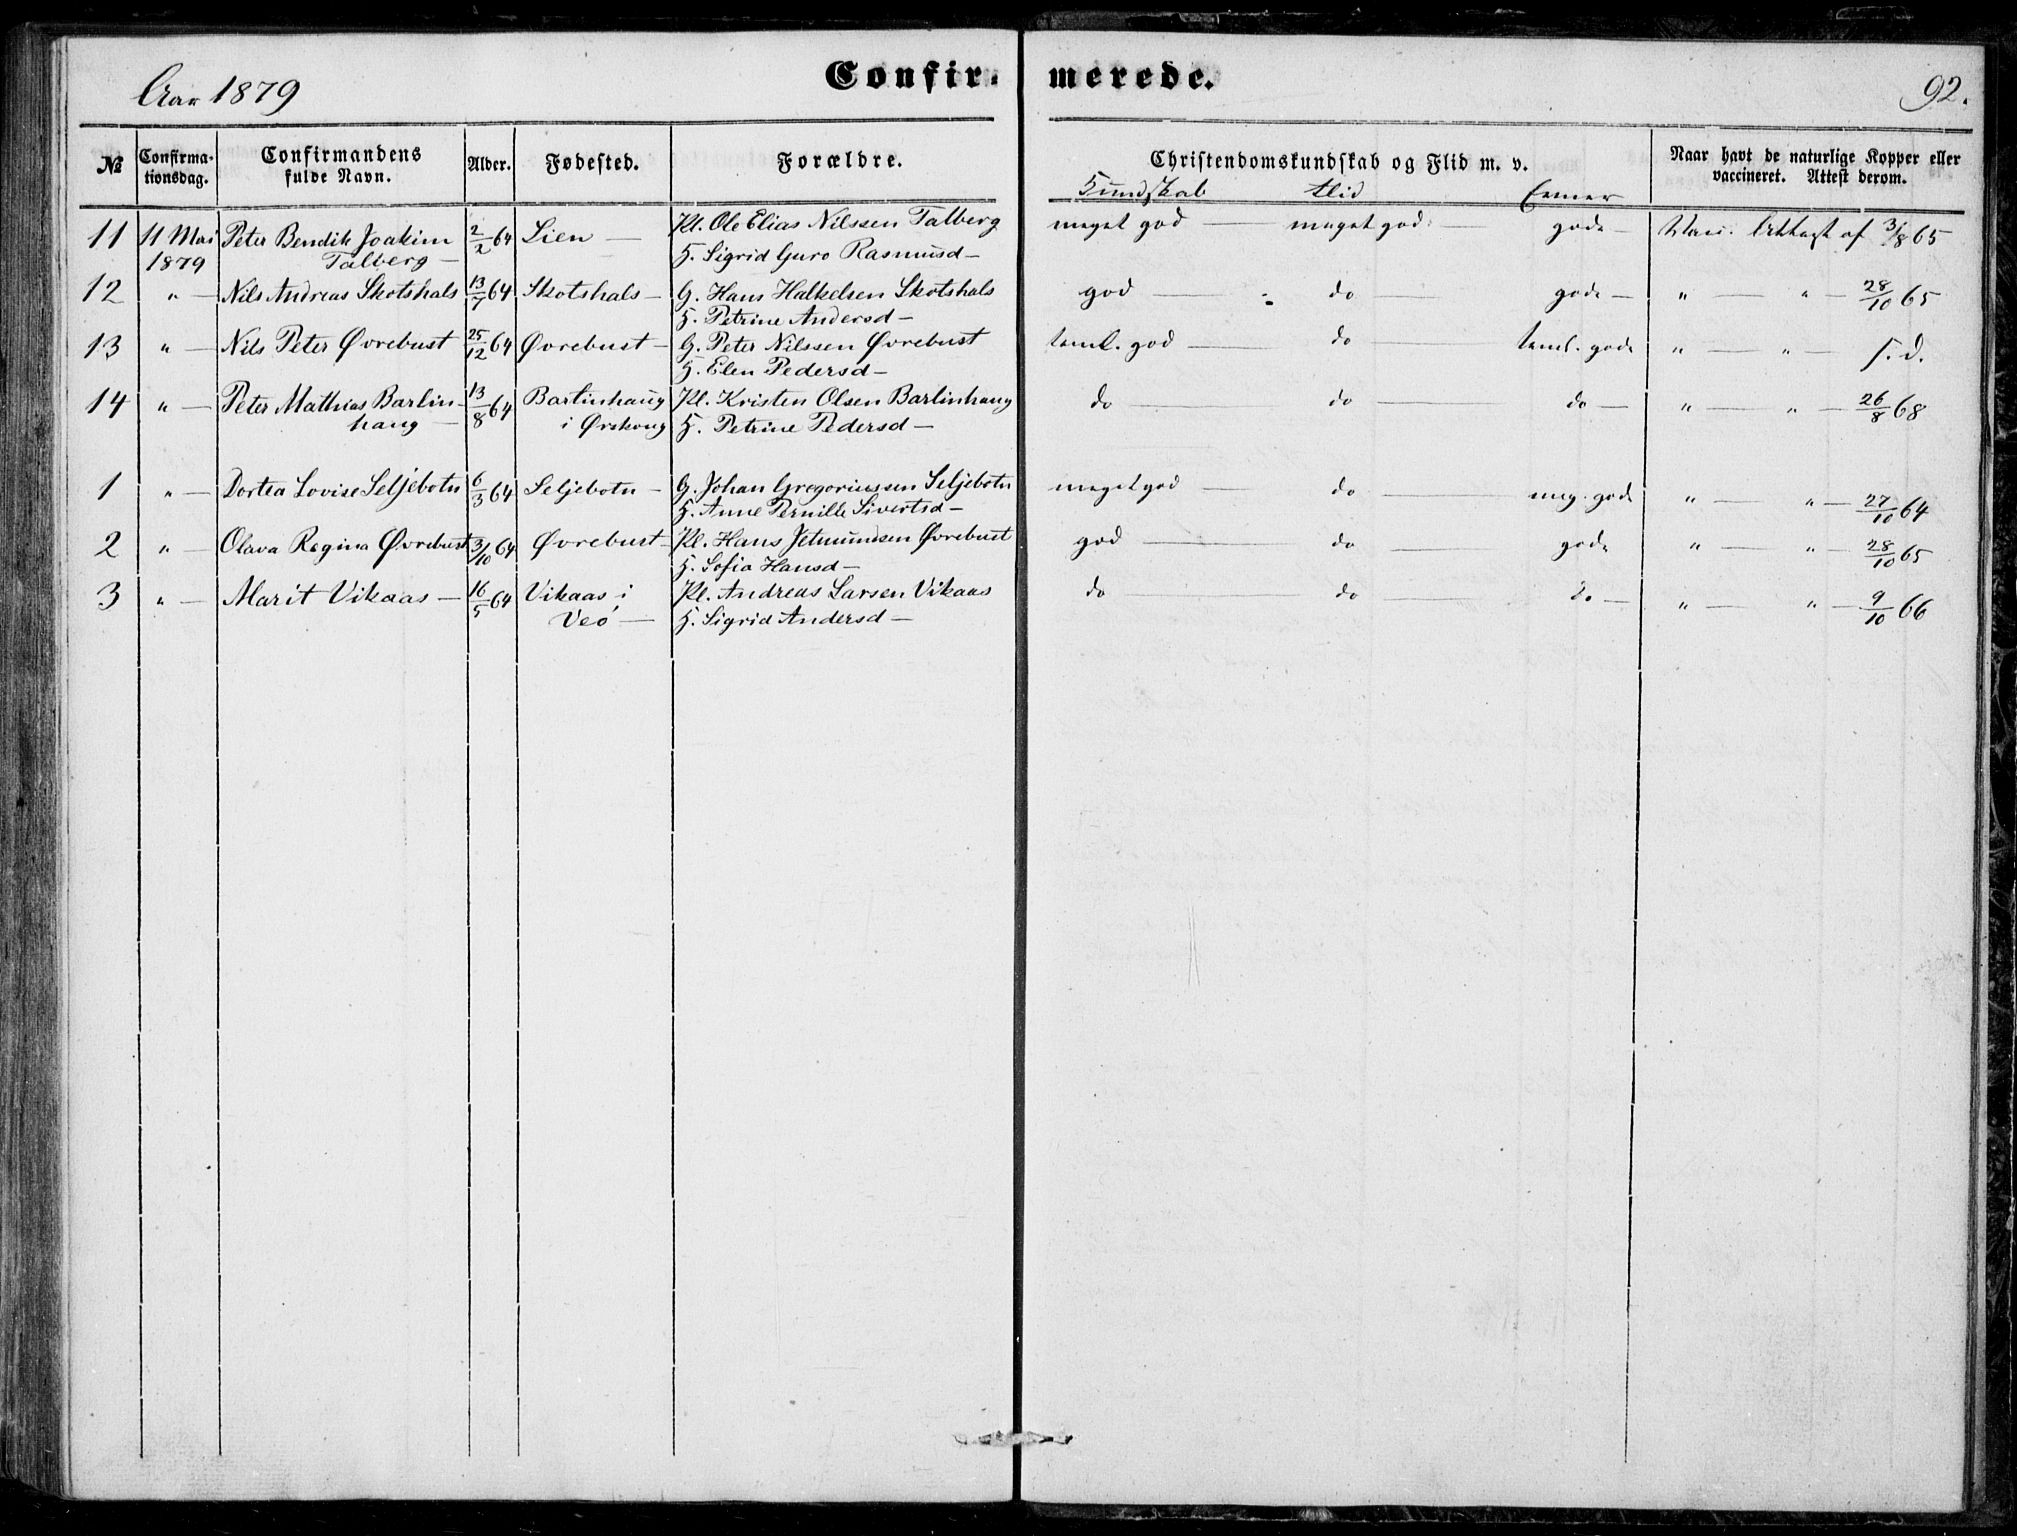 Aar 1879 Confir- merede. 92.
№ Confirma-tionsdag. Confirmandens fulde Navn. Alder. Fødested. Forældre. Christendomskundskab og Flid m. v. Naar havt de naturlige Kopper eller vaccineret. Attest derom.
Kundskab Flid Evner
11 11 Mai Peter Bendik Joakim 2/2 64 Lien — Kl. Ole Elias Nilssen Talberg meget god — meget god — gode — Vacc. Attest af 3/8 65
1879 Talberg — H. Sigrid Guro Rasmusd —
12 " — Nils Andreas Skotshals 13/7 64 Skotshals — G. Hans Halkelsen Skotshals god — do — gode — " — " — 28/10 65
H. Petrine Andersd —
13 " — Nils Peter Øvrebust 25/12 64 Øvrebust — G. Peter Nilssen Øvrebust teml. god — do — teml. gode " — " — s. d.
H. Elen Pedersd —
14 " — Peter Mathias Barlin- 13/8 64 Barlinhaug Kl. Kristen Olsen Barlinhaug do — do — do — " — " — 26/8 68
haug — i Ørskoug H. Petrine Pedersd —
1 " — Dortea Lovise Seljebotn 6/3 64 Seljebotn — G. Johan Gregoriussen Seljebotn meget god — do — meg. gode " — " — 27/10 64
H. Anne Pernille Sivertsd —
2 " — Olava Regina Øvrebust 3/10 64 Øvrebust — Kl. Hans Jetmundsen Øvrebust god — do — gode " — " — 28/10 65
H. Sofia Hansd —
3 " — Marit Vikaas — 16/5 64 Vikaas i Kl. Andreas Larsen Vikaas do do do — " — " — 9/10 66
Veø — H. Sigrid Andersd —